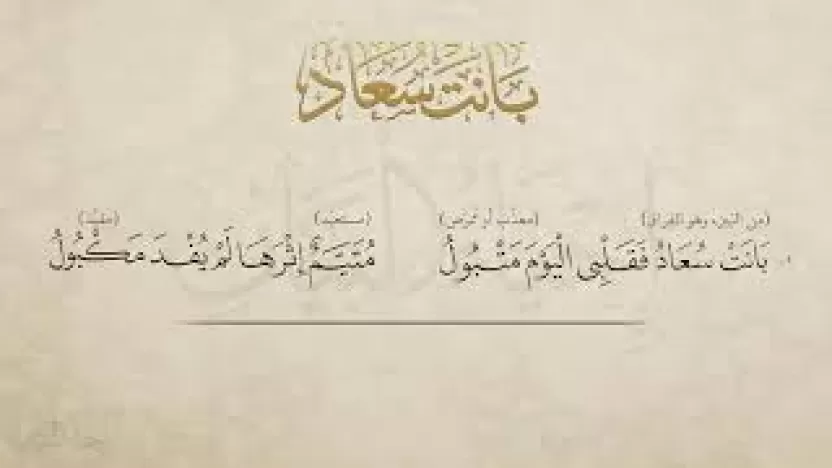 بانت سعاد
(من البين، وهو الفراق) (معذّب أو مُمرَض) (مستعبَد) (مقيَّد)
١. بَانَتْ سُعَادُ فَقَلْبِي الْيَوْمَ مَتْبُولُ مُتَيَّمٌ إِثْرَهَا لَمْ يُفْدَ مَكْبُولُ